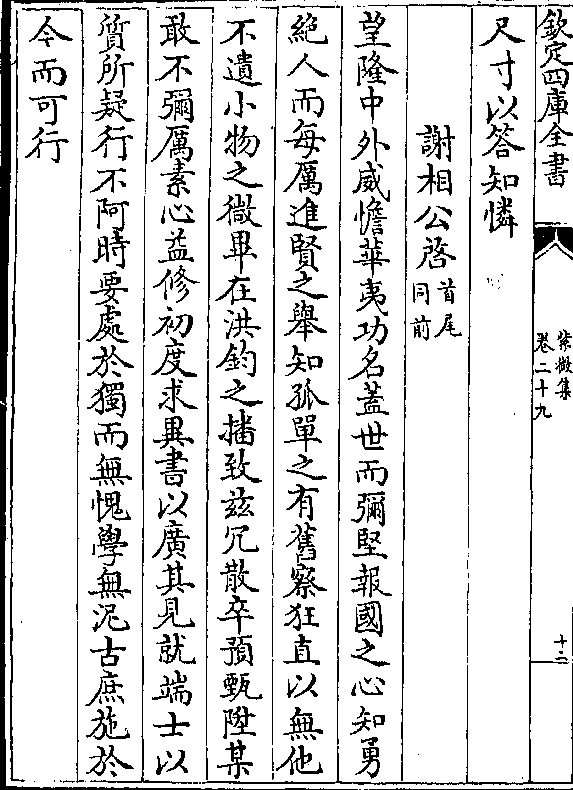 欽定四庫全書
紫微集
卷二十九
十二
尺寸以答知憐
謝相公啓首尾同前
望隆中外威憺華夷功名蓋世而彌堅報國之心知勇
絶人而每厲進賢之舉知孤單之有舊察狂直以無他
不遺小物之微畢在洪鈞之播致兹冗散卒預甄陞某
敢不彌厲素心益修初度求異書以廣其見就端士以
質所疑行不阿時要處於獨而無愧學無泥古庶施於
今而可行